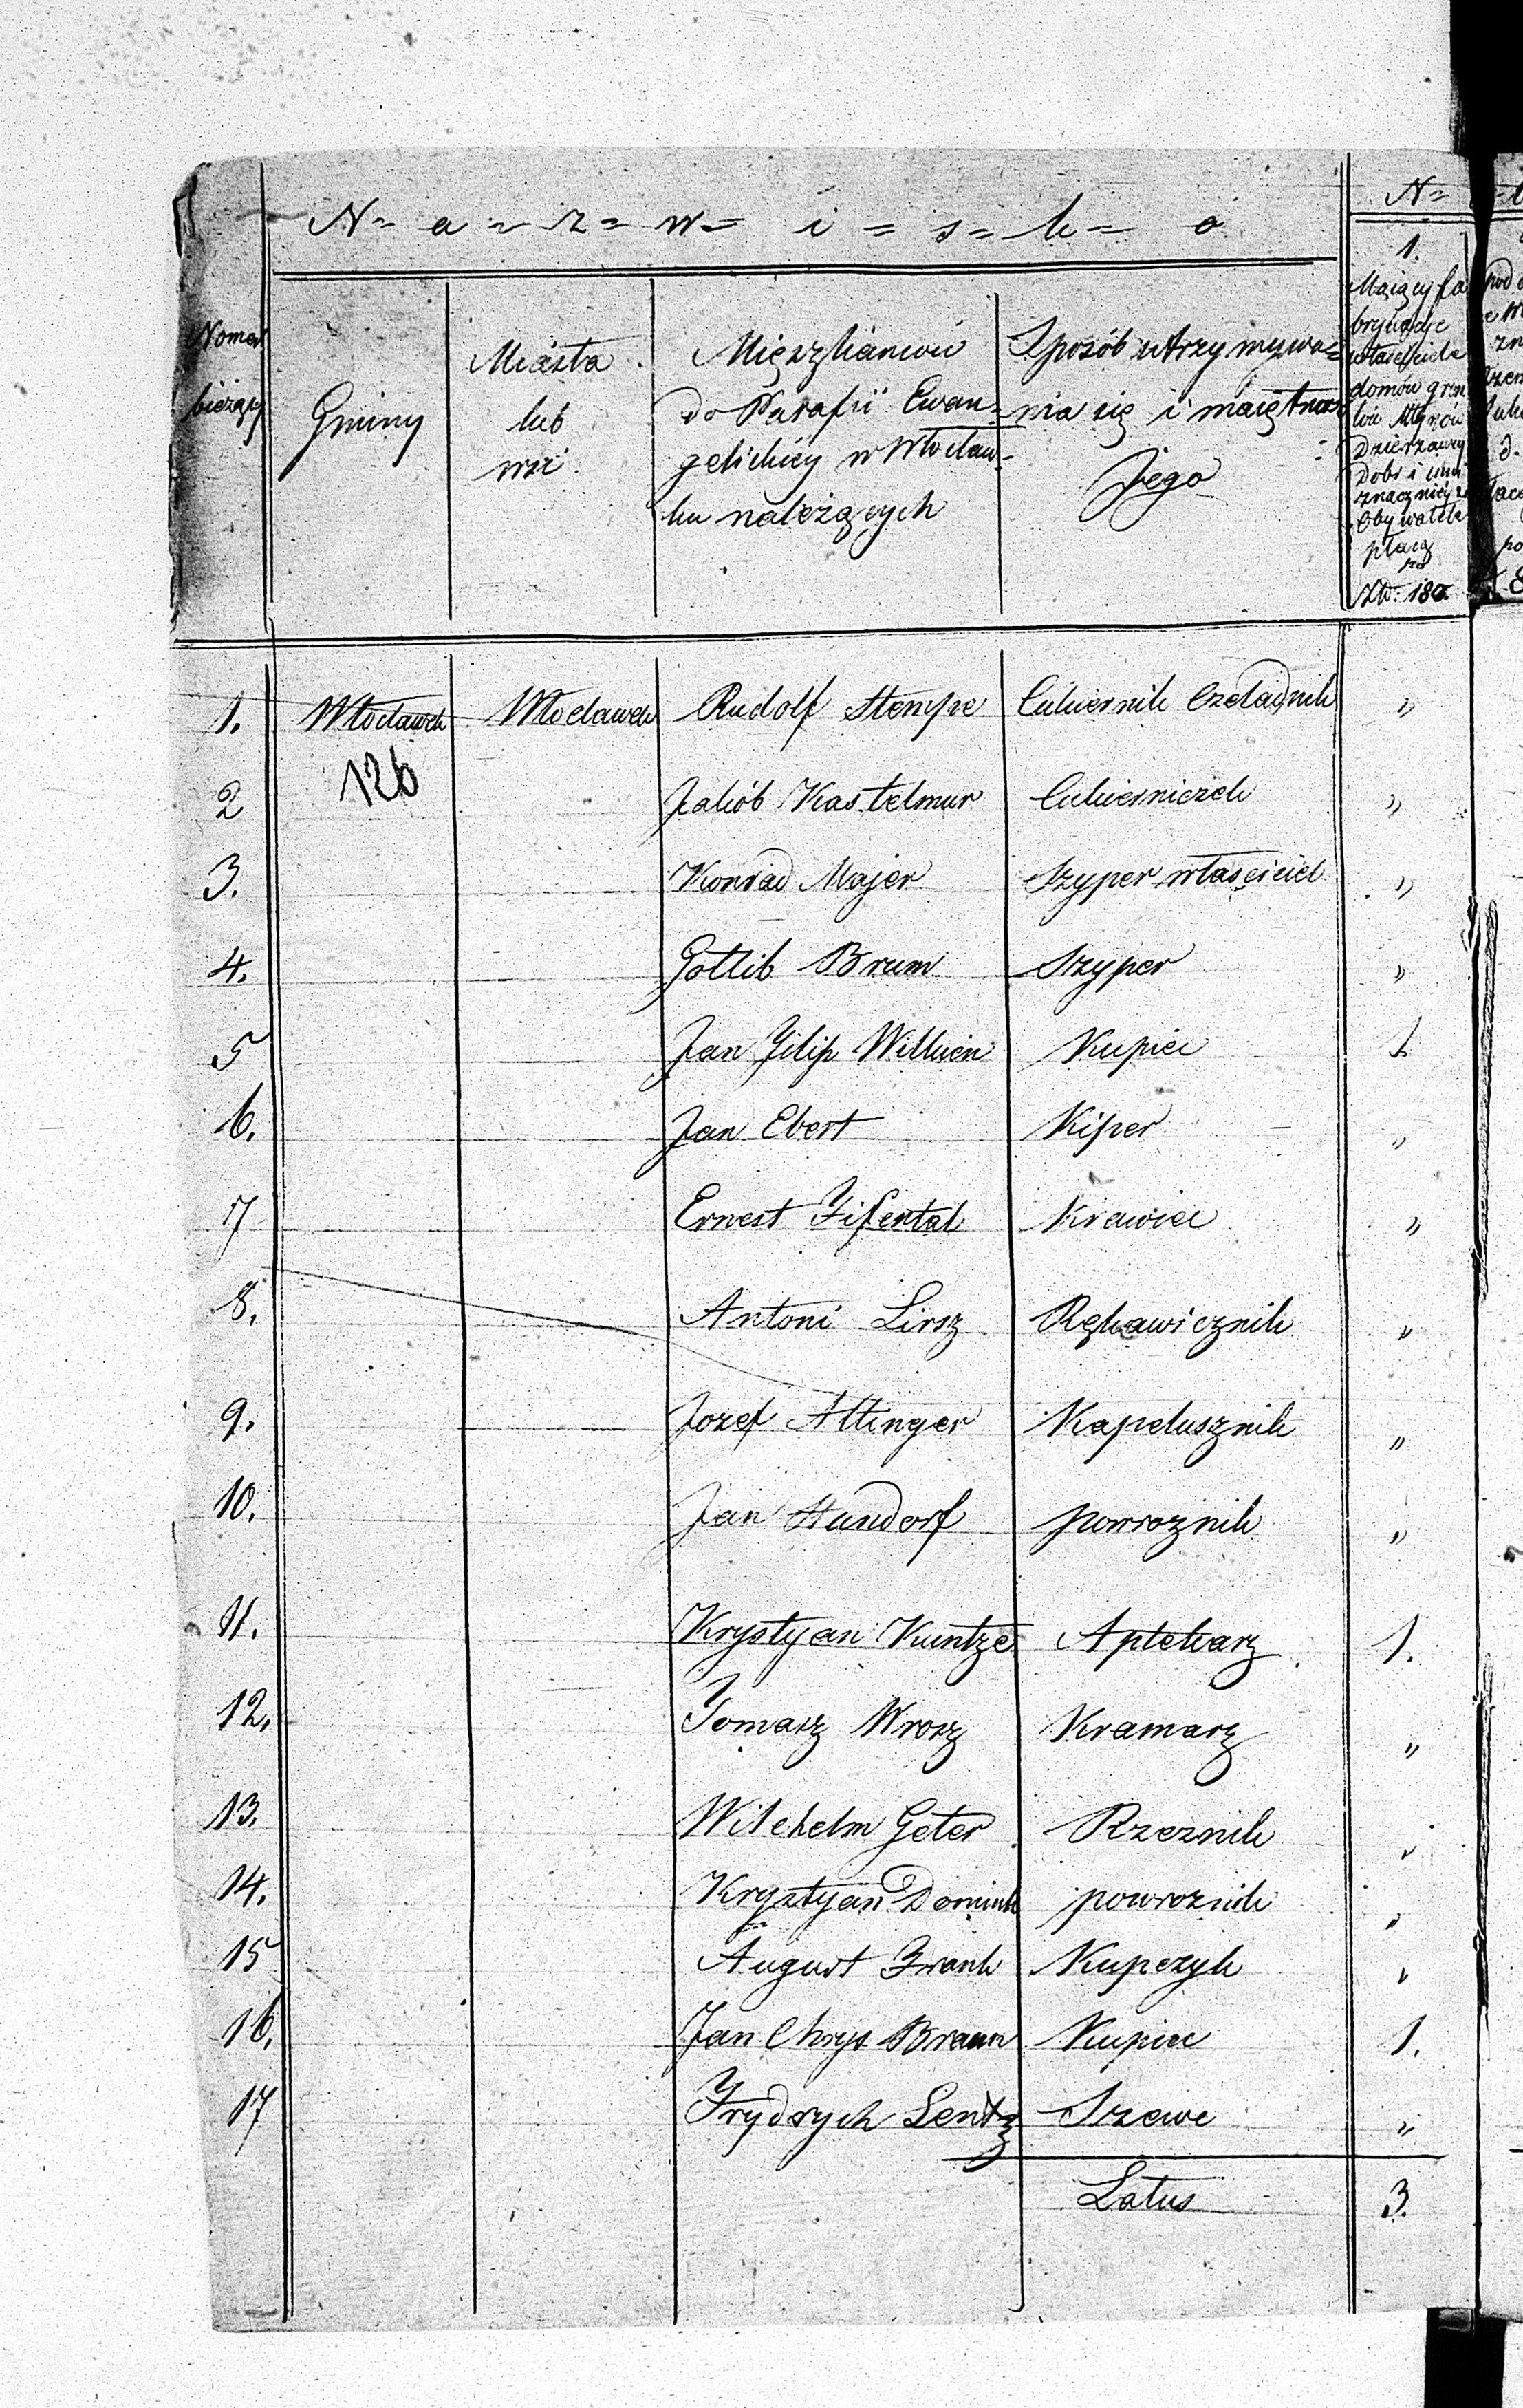 N= a = z = w = i = s = k = o
Numer
bieżący
Gminy
Miasta
lub
wsi
Mięszkańców
do Parafii Ewan=
gelickiey w Włocław=
ku należących
Sposób utrzymywa=
nia się i maiętność
Jego
N=
1.
Maiący fa
bryki
właściciele
domów
Dzierzawcy
Dobr i inni
znacznieysi
Obywatele
płacą
po
Złt: 180.
1. Włocławek Włocławek Rudolf Stempe Cukiernik Czeladnik "
126
2 Jakób Kastelmur Cukierniczek "
3. Konrad Majer Szyper właściciel "
4. Gotlib Brum Szyper "
5 Jan Filip Wilkien Kupiec 1.
6. Jan Ebert Kiper "
7 Ernest Fifertal Krawiec "
8. Antoni Lirsz Rękawicznik "
9. Jozef Altinger Kapelusznik "
10. Jan Standorf powroznik "
11. Krystyan Kuntze Aptekarz 1.
12. Tomasz Wrosz Kramarz "
13. Wilehelm Geter Rzeznik "
14. Krysztyan Dominik powroznik "
15 August Frank Kupczyk "
16. Jan Chrys Braun Kupiec 1.
17 Frydrych Lentz Szewc "
Latus 3.